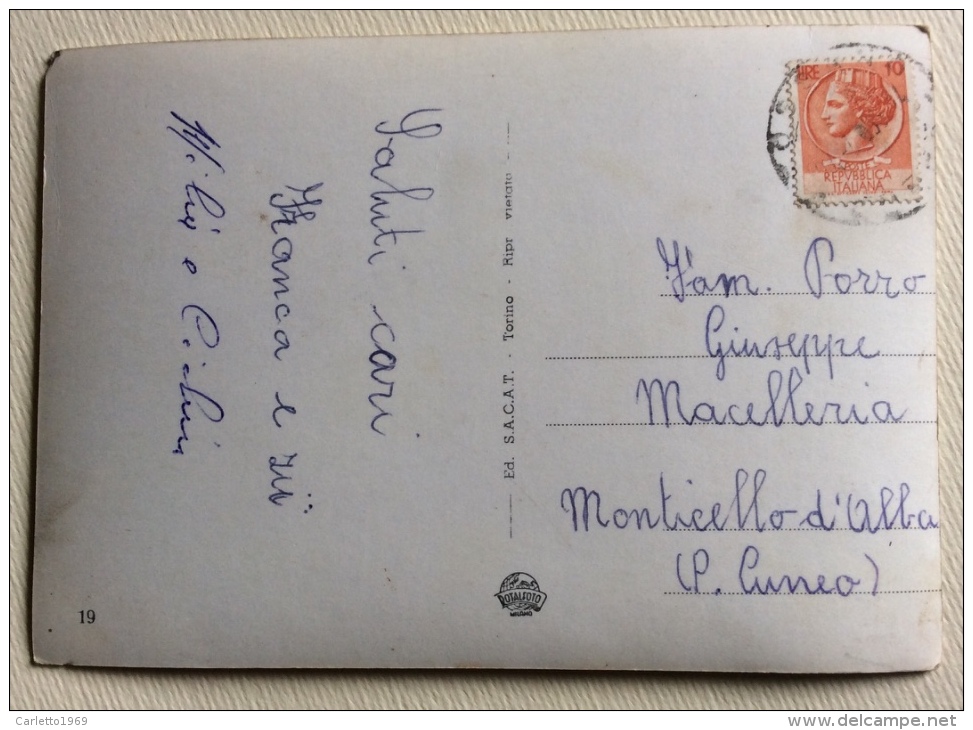 Saluti cari
Franca e zii
19
Ed. S.A.C.A.T. - Torino - Ripr vietata
ROTALFOTO
MILANO
LIRE 10
POSTE
REPVBBLICA
ITALIANA
Fam. Porro
Giuseppe
Macelleria
Monticello d'Alba
(P. Cuneo)
Carletto1969
delcampe.net